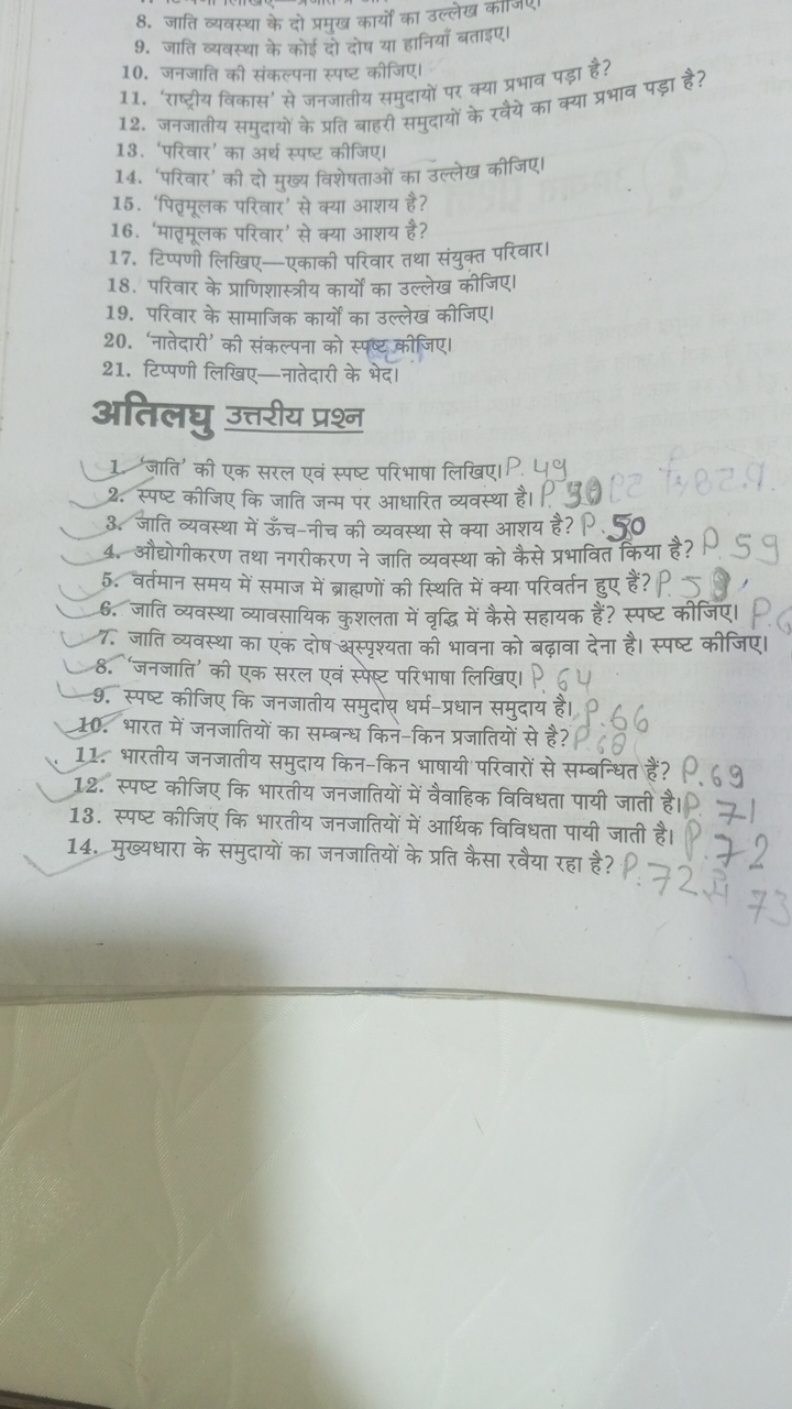 8. जाति व्यवस्था के दो प्रमुख कार्यों का उल्लेख कीजिए।
9. जाति व्यवस्था के कोई दो दोष या हानियाँ बताइए।
10. जनजाति की संकल्पना स्पष्ट कीजिए।
11. ‘राष्ट्रीय विकास’ से जनजातीय समुदायों पर क्या प्रभाव पड़ा है?
12. जनजातीय समुदायों के प्रति बाहरी समुदायों के रवैये का क्या प्रभाव पड़ा है?
13. ‘परिवार’ का अर्थ स्पष्ट कीजिए।
14. ‘परिवार’ की दो मुख्य विशेषताओं का उल्लेख कीजिए।
15. ‘पितृमूलक परिवार’ से क्या आशय है?
16. ‘मातृमूलक परिवार’ से क्या आशय है?
17. टिप्पणी लिखिए—एकाकी परिवार तथा संयुक्त परिवार।
18. परिवार के प्राणिशास्त्रीय कार्यों का उल्लेख कीजिए।
19. परिवार के सामाजिक कार्यों का उल्लेख कीजिए।
20. ‘नातेदारी’ की संकल्पना को स्पष्ट कीजिए।
21. टिप्पणी लिखिए—नातेदारी के भेद।
अतिलघु उत्तरीय प्रश्न
1. ‘जाति’ की एक सरल एवं स्पष्ट परिभाषा लिखिए। P. 49
2. स्पष्ट कीजिए कि जाति जन्म पर आधारित व्यवस्था है। P. 50
3. जाति व्यवस्था में ऊँच-नीच की व्यवस्था से क्या आशय है? P. 50
4. औद्योगीकरण तथा नगरीकरण ने जाति व्यवस्था को कैसे प्रभावित किया है? P. 59
5. वर्तमान समय में समाज में ब्राह्मणों की स्थिति में क्या परिवर्तन हुए हैं? P. 59
6. जाति व्यवस्था व्यावसायिक कुशलता में वृद्धि में कैसे सहायक हैं? स्पष्ट कीजिए।
7. जाति व्यवस्था का एक दोष अस्पृश्यता की भावना को बढ़ावा देना है। स्पष्ट कीजिए।
8. ‘जनजाति’ की एक सरल एवं स्पष्ट परिभाषा लिखिए। P. 64
9. स्पष्ट कीजिए कि जनजातीय समुदाय धर्म-प्रधान समुदाय है। P. 66
10. भारत में जनजातियों का सम्बन्ध किन-किन प्रजातियों से है? P. 68
11. भारतीय जनजातीय समुदाय किन-किन भाषायी परिवारों से सम्बन्धित हैं? P. 69
12. स्पष्ट कीजिए कि भारतीय जनजातियों में वैवाहिक विविधता पायी जाती है। P. 71
13. स्पष्ट कीजिए कि भारतीय जनजातियों में आर्थिक विविधता पायी जाती है। P. 72
14. मुख्यधारा के समुदायों का जनजातियों के प्रति कैसा रवैया रहा है? P. 72 से 73